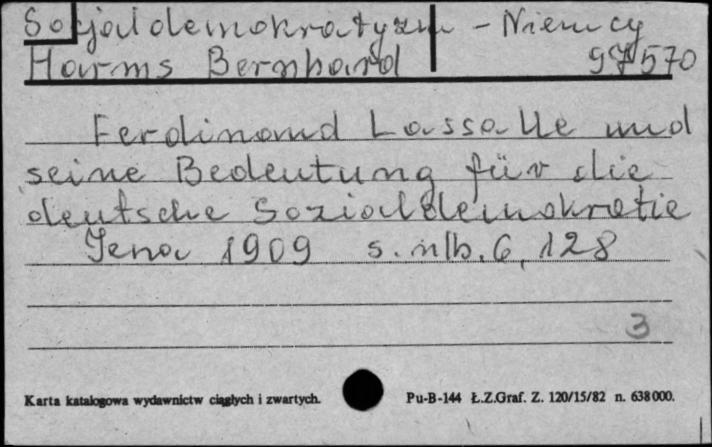 Socjaldemokratyzm - Niemcy
Harms Bernhard 97570
Ferdinand Lassalle und
seine Bedeutung für die
deutsche Sozialdemokratie
Jena 1909 s. nlb. 6, 128
3
Karta katalogowa wydawnictw ciągłych i zwartych. Pu-B-144 Ł.Z.Graf. Z. 120/15/82 n. 638000.